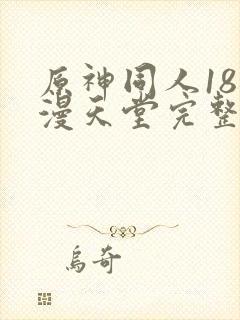 原神同人18
漫天堂完整
乌奇